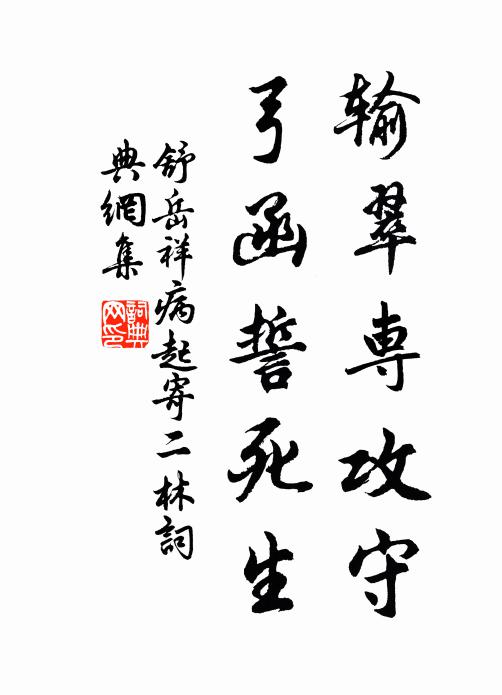 输翠専攻守
弓函誓死生
舒岳祥病起寄二林詞
典網集
詞典
网印